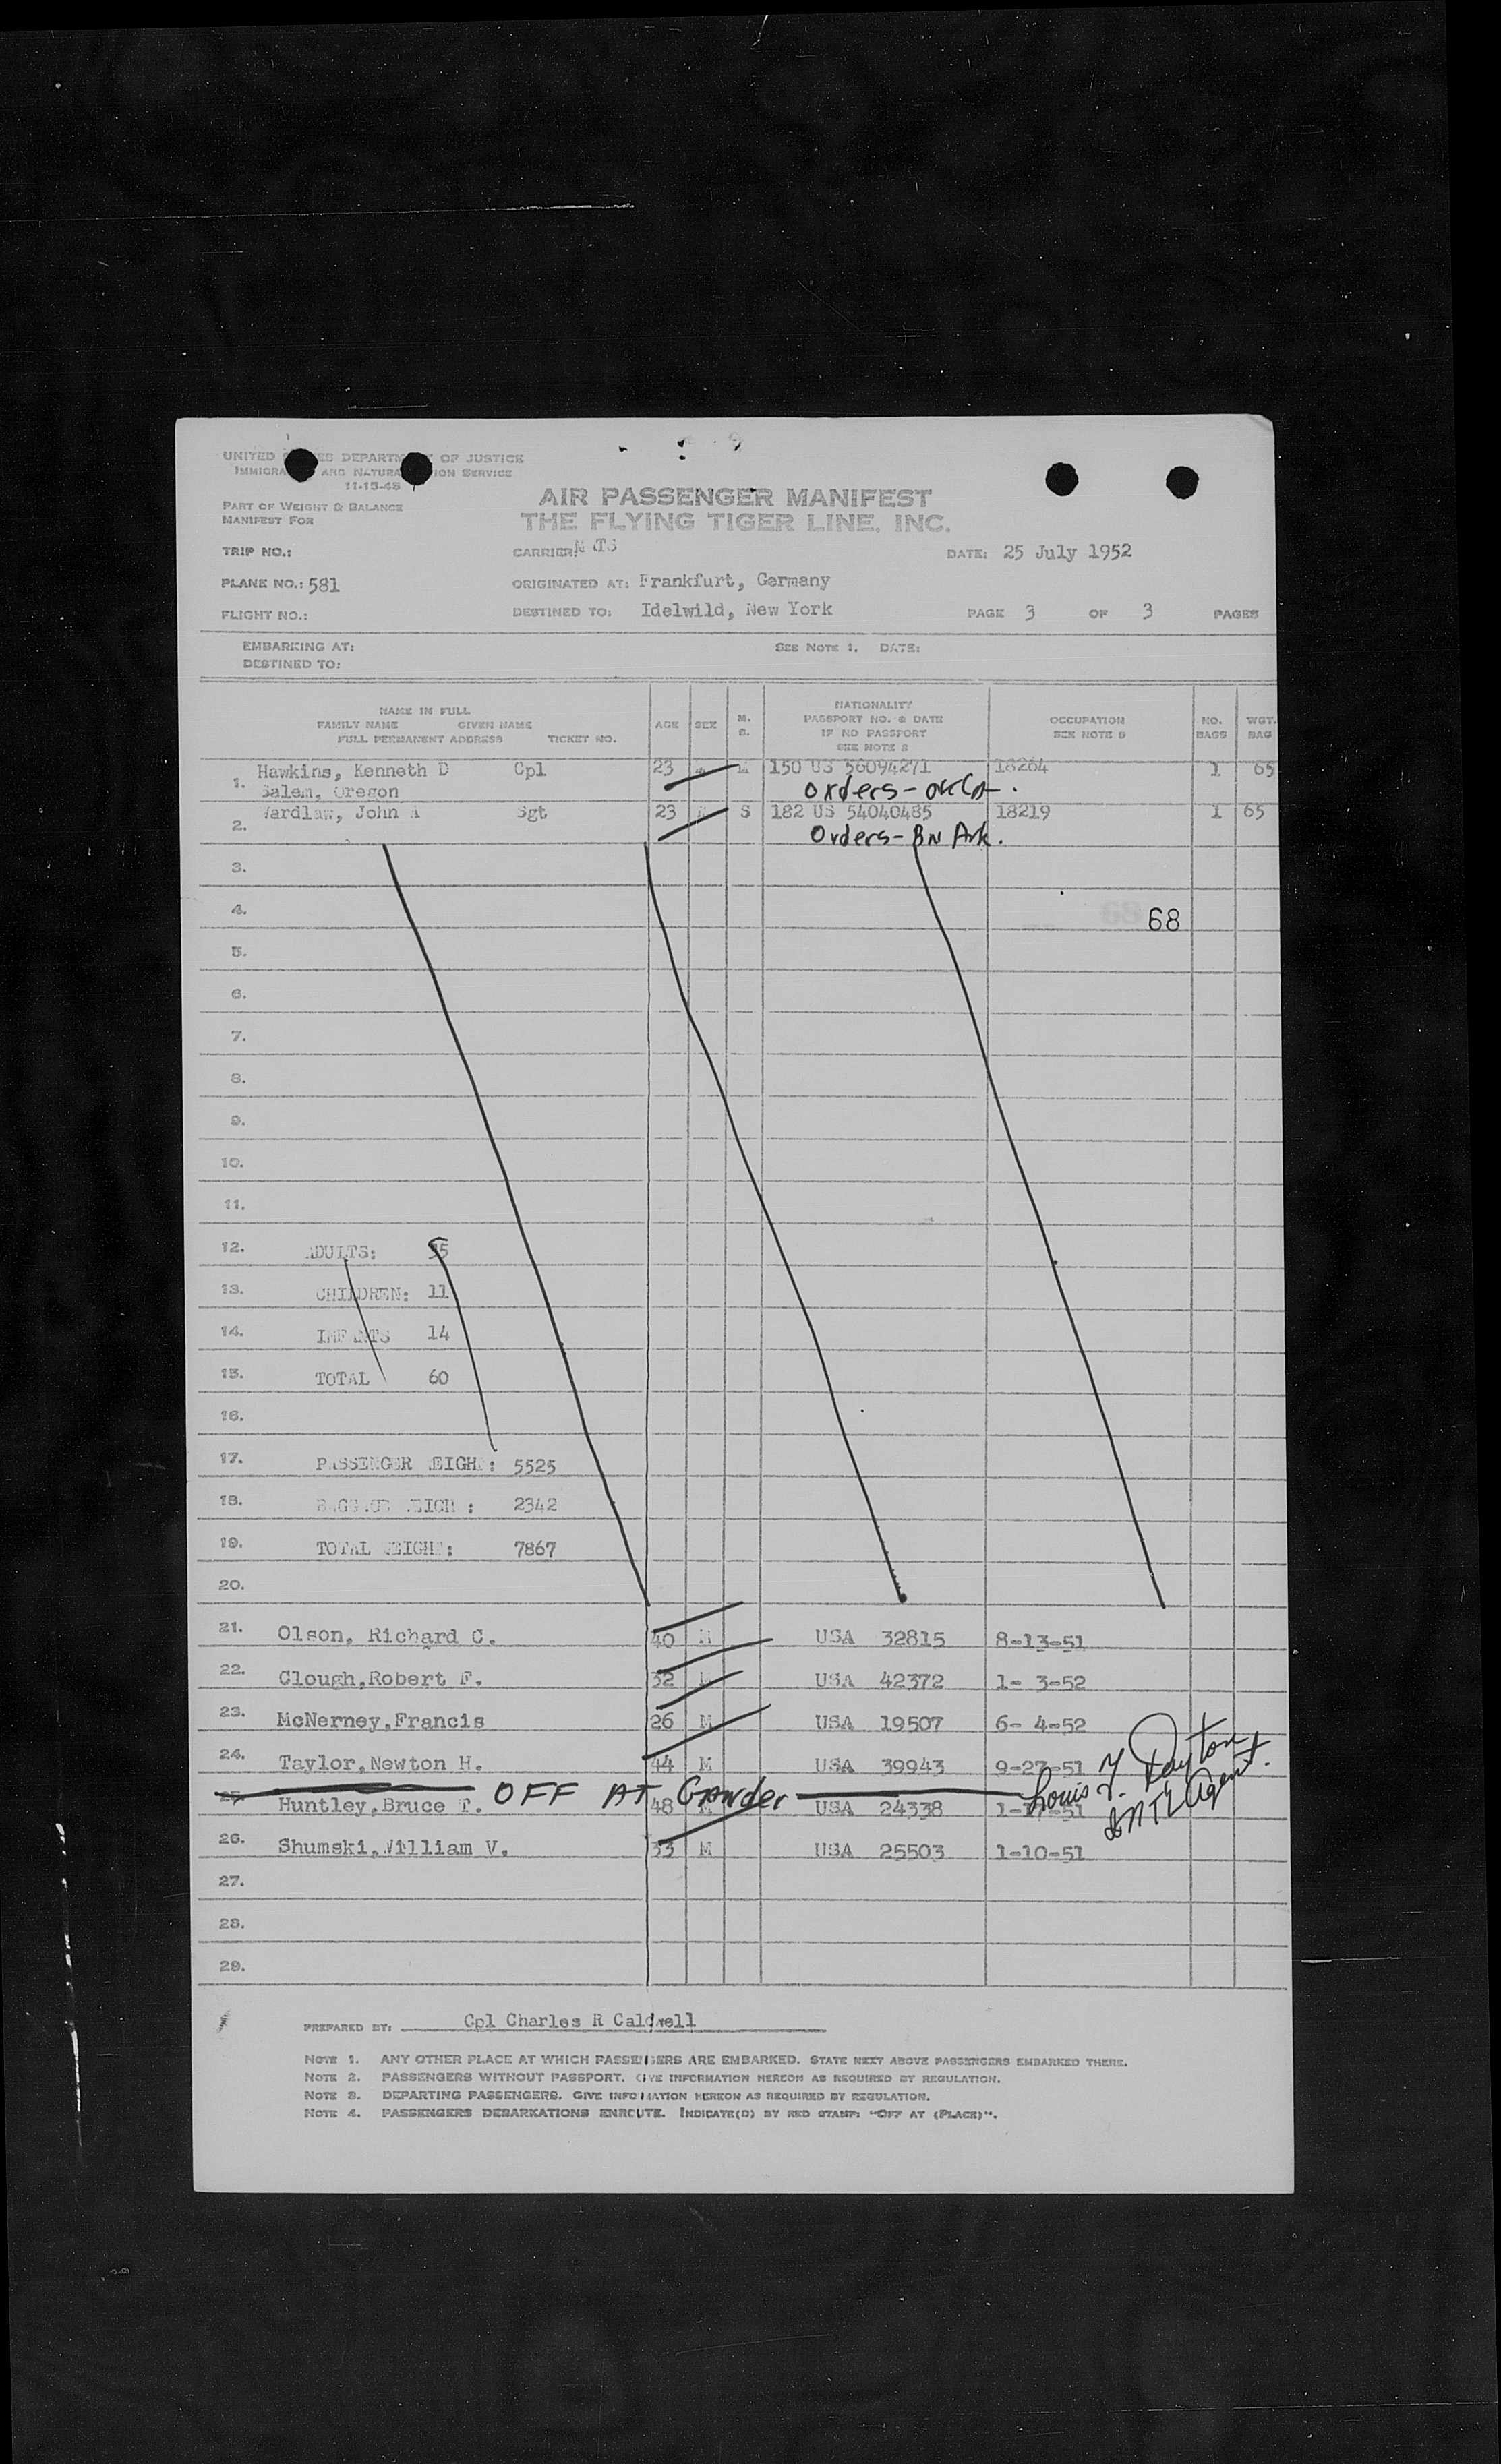 UNITED STATES DEPARTMENT OF JUSTICE
IMMIGRATION AND NATURALIZATION SERVICE
11-15-48
PART OF WEIGHT & BALANCE
MANIFEST FOR
AIR PASSENGER MANIFEST
THE FLYING TIGER LINE, INC.
TRIP NO.: CARRIER: DATE: 25 July 1952
PLANE NO.: 581 ORIGINATED AT: Frankfurt, Germany
FLIGHT NO.: DESTINED TO: Idelwild, New York PAGE 3 OF 3 PAGES
EMBARKING AT: SEE NOTE 1. DATE:
DESTINED TO:
NAME IN FULL
FAMILY NAME GIVEN NAME
FULL PERMANENT ADDRESS TICKET NO.
AGE SEX M. S.
NATIONALITY
PASSPORT NO. & DATE
IF NO PASSPORT
SEE NOTE 2
OCCUPATION
SEE NOTE 3
NO. BAGS
WGT. BAG
1. Hawkins, Kenneth D Cpl 23 M 150 US 56094271 18264 1 65
Salem, Oregon Orders
2. Wardlaw, John A Sgt 23 S 182 US 54040485 18219 1 65
Orders - BN Ark.
3.
4. 68
5.
6.
7.
8.
9.
10.
11.
12. ADULTS: 35
13. CHILDREN: 11
14. INFANTS 14
15. TOTAL 60
16.
17. PASSENGER WEIGHT: 5525
18. BAGGAGE WEIGHT: 2342
19. TOTAL WEIGHT: 7867
20.
21. Olson, Richard C. 40 M USA 32815 8-13-51
22. Clough,Robert F. 32 M USA 42372 1- 3-52
23. McNerney,Francis 26 M USA 19507 6- 4-52
24. Taylor,Newton H. 44 M USA 39943 9-27-51
OFF AT Gander
25. Huntley,Bruce T. 48 M USA 24338
Louis J. Dayton
Agent.
26. Shumski,William V. 33 M USA 25503 1-10-51
27.
28.
29.
PREPARED BY: Cpl Charles R Caldwell
NOTE 1. ANY OTHER PLACE AT WHICH PASSENGERS ARE EMBARKED. STATE NEXT ABOVE PASSENGERS EMBARKED THERE.
NOTE 2. PASSENGERS WITHOUT PASSPORT. GIVE INFORMATION HEREON AS REQUIRED BY REGULATION.
NOTE 3. DEPARTING PASSENGERS. GIVE INFORMATION HEREON AS REQUIRED BY REGULATION.
NOTE 4. PASSENGERS DEBARKATIONS ENROUTE. INDICATE(D) BY RED STAMP: "OFF AT (PLACE)".